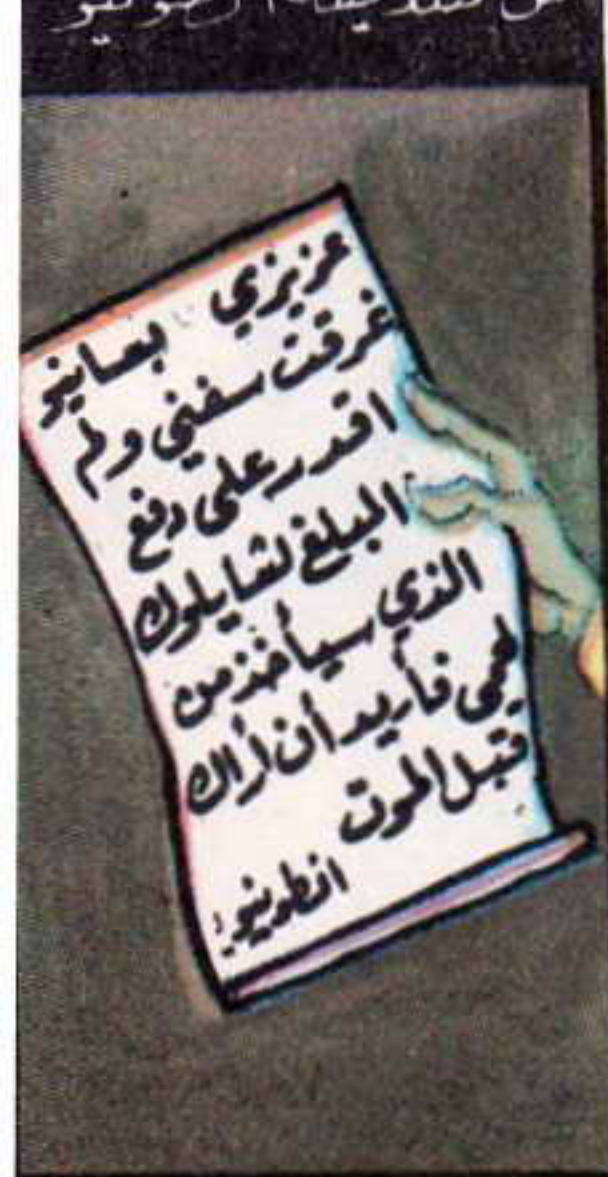 من صديقه انطونيو
عزيزي بصاينو
غرقت سفني ولم
اقدر على دفع
المبلغ لشايلوك
الذي سيأخذ من
لحمي فأريد أن أراك
قبل الموت
انطونيو